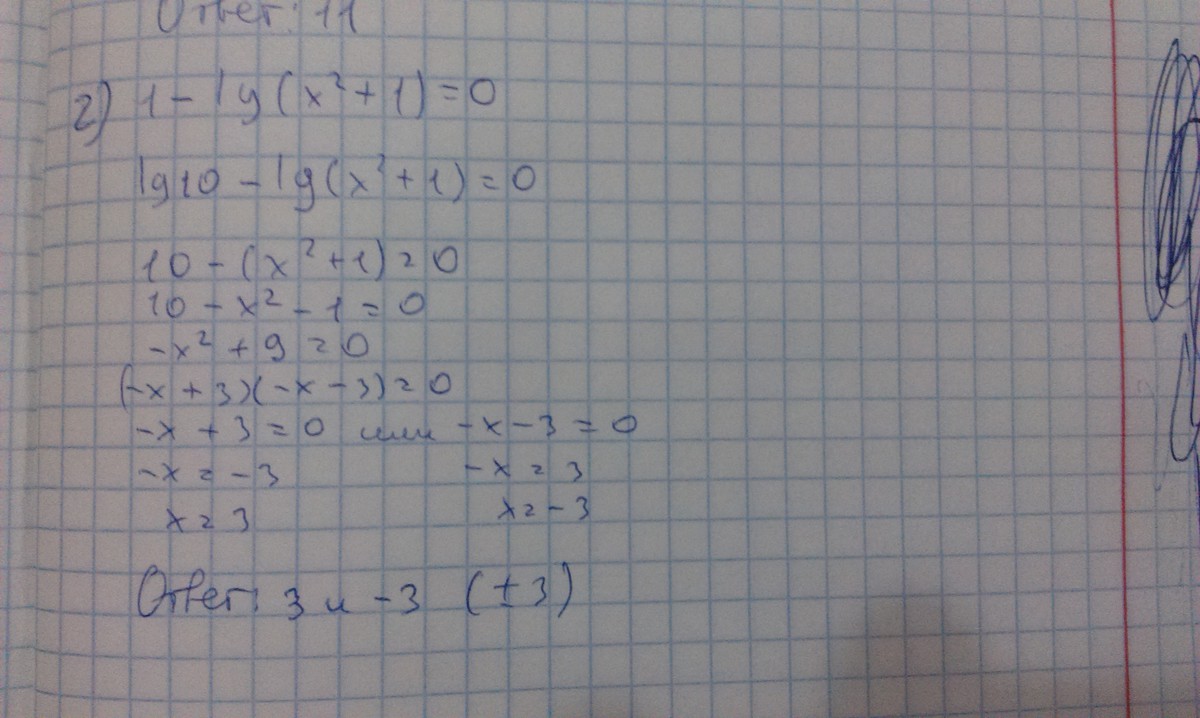 Ответ: 11
2) 1 - lg(x² + 1) = 0
lg10 - lg(x² + 1) = 0
10 - (x² + 1) = 0
10 - x² - 1 = 0
-x² + 9 = 0
(-x + 3)(-x - 3) = 0
-x + 3 = 0 или -x - 3 = 0
-x = -3 -x = 3
x = 3 x = -3
Ответ: 3 и -3 (±3)